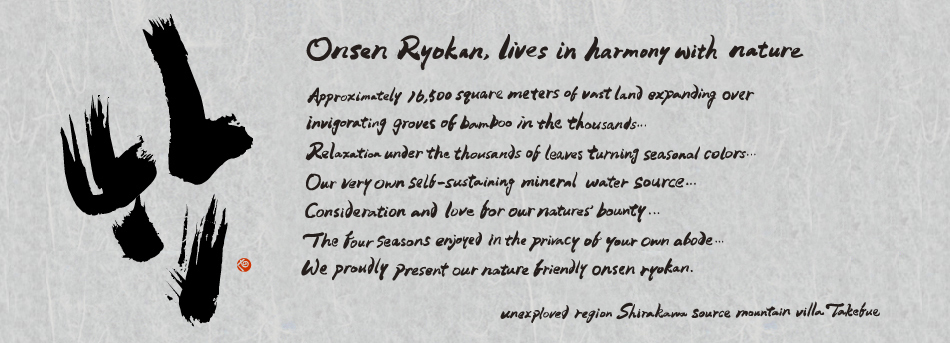 Onsen Ryokan, lives in harmony with nature
Approximately 16,500 square meters of vast land expanding over
invigorating groves of bamboo in the thousands…
Relaxation under the thousands of leaves turning seasonal colors…
Our very own self-sustaining mineral water source…
Consideration and love for our natures' bounty…
The four seasons enjoyed in the privacy of your own abode…
We proudly present our nature friendly onsen ryokan.
unexploved region Shirakawa source mountain villa Takefue